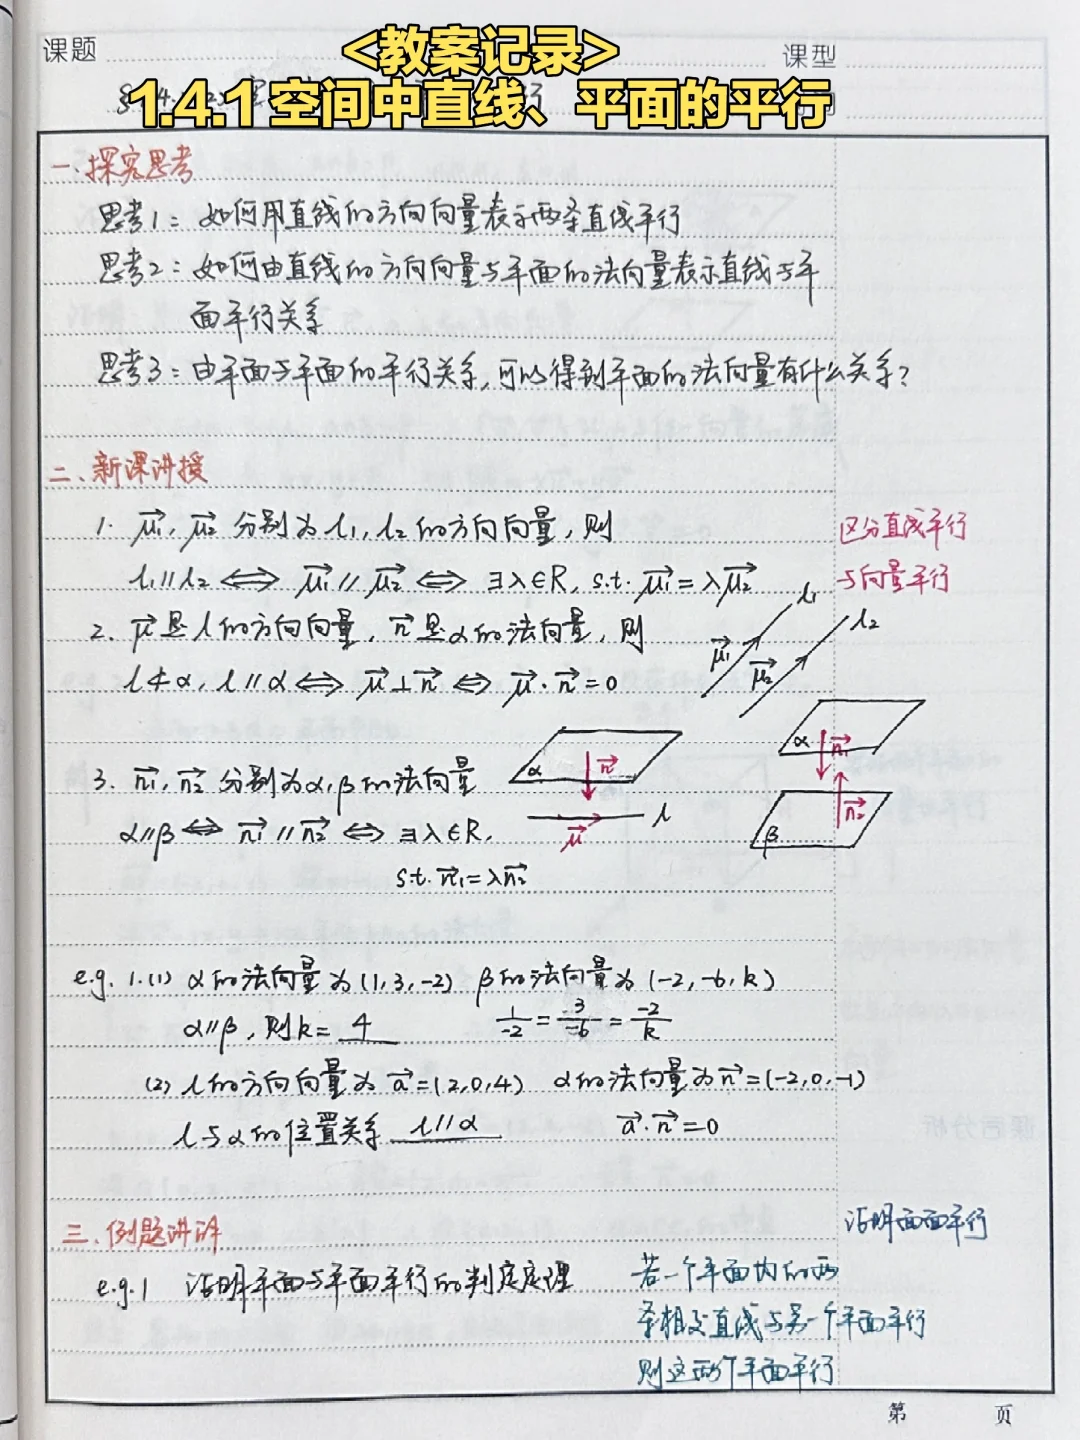 课题
<教案记录>
课型
1.4.1 空间中直线、平面的平行
一、探究思考
思考1：如何用直线的方向向量表示两条直线平行
思考2：如何由直线的方向向量与平面的法向量表示直线与平
面平行关系
思考3：由平面与平面的平行关系，可以得到平面的法向量有什么关系？
二、新课讲授
1. μ₁⃗，μ₂⃗ 分别为l₁，l₂的方向向量，则
区分直线平行
与向量平行
l₁∥l₂ ⟺ μ₁⃗∥μ₂⃗ ⟺ ∃λ∈R, s.t. μ₁⃗=λμ₂⃗
l₁
l₂
μ₁⃗
μ₂⃗
2. μ⃗是l的方向向量，n⃗是α的法向量，则
l⊄α，l∥α ⟺ μ⃗⊥n⃗ ⟺ μ⃗·n⃗=0
α n⃗
l
μ⃗
α n₁⃗
β n₂⃗
3. n₁⃗，n₂⃗ 分别为α，β的法向量
α∥β ⟺ n₁⃗∥n₂⃗ ⟺ ∃λ∈R，
s.t. n₁⃗=λn₂⃗
e.g. 1.(1) α的法向量为(1,3,-2) β的法向量为(-2,-6,k)
α∥β，则k= 4 1/-2=3/-6=-2/k
(2) l的方向向量为a⃗=(2,0,4) α的法向量为n⃗=(-2,0,-1)
l与α的位置关系 l∥α a⃗·n⃗=0
三、例题讲解
证明面面平行
e.g.1 证明平面与平面平行的判定定理
若一个平面内的两
条相交直线与另一个平面平行
则这两个平面平行
第 页